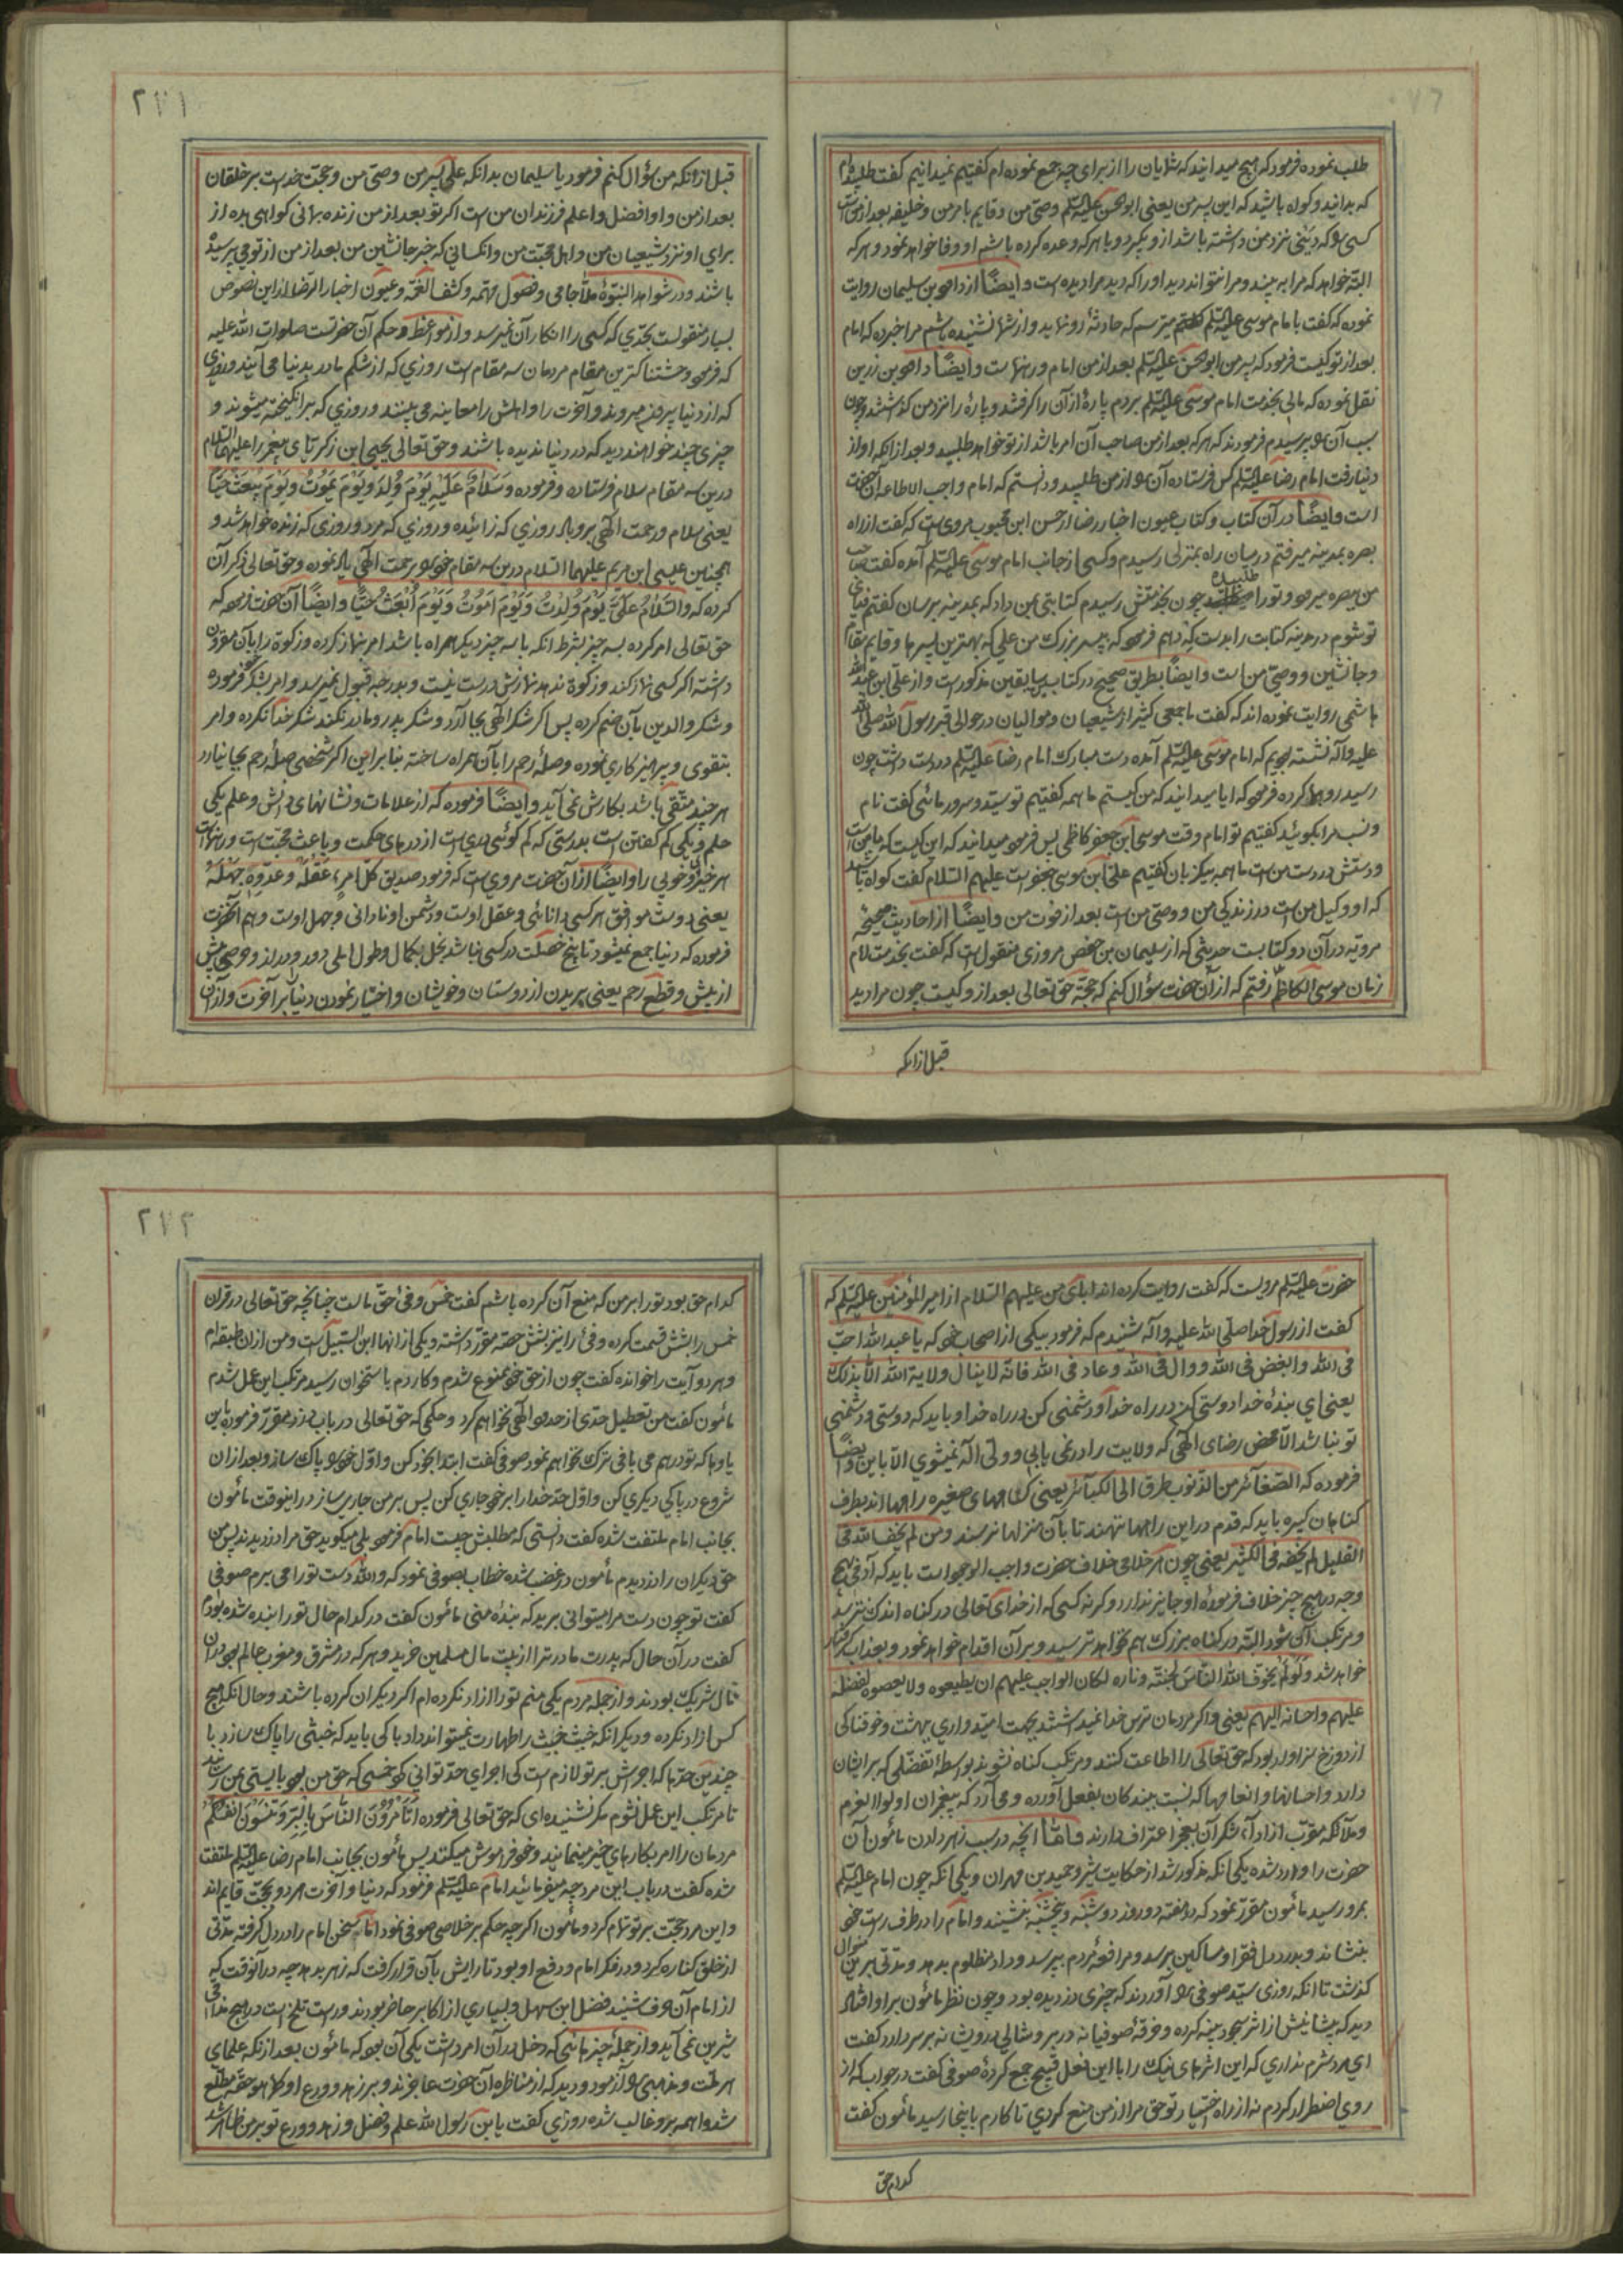 طلب نموده فرمود که هیچ میدانید که شمایان را از برای چه جمع نموده‌ام کفتیم نمیدانیم کفت طلبیدم
که بدانید و کواه باشید که این پسر من یعنی ابو الحسن علیه السلم وصی من و قایم بامر من و خلیفه بعد از من است
کسی را که دینی نزد من داشته باشد از و بکیرد و با هر که وعده کرده باشم او وفا خواهد نمود و هر که
البته خواهد که مرا به بیند و مرا نتواند دید او را که دید مرا دیده است و ایضاً از داود بن سلیمان روایت
نموده که کفت با امام موسی علیه السلم کفتم میترسم که حادثهٔ رو نماید و از شما نشنیده باشم مرا خبر ده که امام
بعد از تو کیست فرمود که پسر من ابو الحسن علیه السلم بعد از من امام و رهنماست و ایضاً داود بن زرین
نقل نموده که مالی بخدمت امام موسی علیه السلم بردم پارهٔ از آن را کرفتند و پارهٔ را نزد من کذاشتند و چون
سبب آن را پرسیدم فرمودند که هر که بعد از من صاحب آن امر باشد از تو خواهد طلبید و بعد از انکه او از
دنیا رفت امام رضا علیه السلم کس فرستاده آن را از من طلبید و دانستم که امام واجب الاطاعه آن حضرت
است و ایضاً در آن کتاب و کتاب عیون اخبار رضا از حسن ابن محبوب مروی است که کفت از راه
بصره بمدینه میرفتم در میان راه بمنزلی رسیدم و کسی از جانب امام موسی علیه السلم آمده کفت صاحب
من ببصره میرود و تو را طلبیده چون بخدمتش رسیدم کتابتی بمن داد که بمدینه برسان کفتم فدای
تو شوم در مدینه کتابت را بدست که دهم فرمود که بپسر بزرک من علی که بهترین پسرها و قایم مقام
و جانشین و وصی من است و ایضاً بطریق صحیح در کتابین سابقین مذکور است و از علی ابن عبد الله
هاشمی روایت نموده اند که کفت با جمعی کثیر از شیعیان و موالیان در حوالی قبر رسول الله صلی الله
علیه و آله نشسته بودیم که امام موسی علیه السلم آمده دست مبارک امام رضا علیه السلم در دست داشت چون
رسید رو بما کرده فرمود که ایا میدانید که من کیستم ما همه کفتیم تو سید و سرور مائی کفت نام
و نسب مرا بکوئید کفتیم تو امام وقت موسی ابن جعفر کاظمی پس فرمود میدانید که این کیست که با من است
و دستش در دست من است ما همه بیکزبان کفتیم علی ابن موسی بن جعفر است علیهم السلام کفت کواه باشید
که او وکیل من است در زندکی من و وصی من است بعد از فوت من و ایضاً از احادیث صحیحه
مرویه در آن دو کتابست حدیثی که از سلیمان بن حفص مروزی منقول است که کفت بخدمت امام
زمان موسی الکاظم رفتم که از آن حضرت سؤال کنم که حجة حق تعالی بعد از و کیست چون مرا دید
قبل از انکه
۲۷۱
قبل از انکه من سؤال کنم فرمود یا سلیمان بدانکه علی پسر من وصی من و حجت خداست بر خلقان
بعد از من و او افضل و اعلم فرزندان من است اکر تو بعد از من زنده بمانی کواهی بده از
برای او نزد شیعیان من و اهل محبت من و انکسانی که خبر جانشین من بعد از من از تو می پرسیده
باشند و در شواهد النبوة ملا جامی و فصول مهمه و کشف الغمه و عیون اخبار الرضا از این نصوص
بسیار منقولست بحدی که کسی را انکار آن نمیرسد و از مواعظ و حکم آن حضرتست صلوات الله علیه
که فرمود وحشتناکترین مقام مردمان سه مقام است روزی که از شکم مادر بدنیا می آیند و روزی
که از دنیا بیرون میروند و آخرت را و اهلش را معاینه می بینند و روزی که برانکیخته میشوند و
چیزی چند خواهند دید که در دنیا ندیده باشند و حق تعالی یحیی ابن زکریای پیغمبر را علیهما السلام
درین سه مقام سلام فرستاده و فرموده وَ سَلامٌ عَلَیْهِ یَوْمَ وُلِدَ وَ یَوْمَ یَمُوتُ وَ یَوْمَ یُبْعَثُ حَیّاً
یعنی سلام و رحمت الهی برو باد روزی که زائیده و روزی که مرد و روزی که زنده خواهد شد و
همچنین عیسی ابن مریم علیهما السلام درین سه مقام خود را برحمت الهی یاد نموده و حق تعالی ذکر آن
کرده که وَ السَّلامُ عَلَیَّ یَوْمَ وُلِدْتُ وَ یَوْمَ اَمُوتُ وَ یَوْمَ اُبْعَثُ حَیّاً و ایضاً آن حضرت فرموده که
حق تعالی امر کرده بسه چیز بشرط انکه با سه چیز دیکر همراه باشد امر بنماز کرده و زکوة را با آن مقرون
داشته اکر کسی نماز کند و زکوة ندهد نمازش درست نیست و بدرجهٔ قبول نمیرسد و امر بشکر خود فرموده
و شکر والدین بآن ضم کرده پس اکر شکر الهی بجا آرد و شکر پدر و مادر نکند شکر خدا نکرده و امر
بتقوی و پرهیزکاری نموده و صلهٔ رحم را بآن همراه ساخته بنا بر این اکر شخصی صلهٔ رحم بجا نیارد
هر چند متقی باشد بکارش نمی آید و ایضاً فرموده که از علامات و نشانهای دانش و علم یکی
حلم و یکی کم کفتن است بدرستی که کم کوئی دری است از درهای حکمت و باعث محبت است و رهنماست
هر خیر و خوبی را و ایضاً از آن حضرت مروی است که فرمود صدیق کل امرء عَقْلُهُ و عَدُوّهُ جَهْلُهُ
یعنی دوست موافق هر کسی دانائی و عقل اوست و دشمن او نادانی و جهل اوست و هم آنحضرت
فرموده که دنیا جمع نمیشود تا پنج خصلت در کسی نباشد بخل بکمال و طول املی دور و دراز و حرصی بیش
از بیش و قطع رحم یعنی بریدن از دوستان و خویشان و اختیار نمودن دنیا بر آخرت و از آن
حضرت علیه السلم مرویست که کفت روایت کرده اند ابای من علیهم السلام از امیر المؤمنین علیه السلم که
کفت از رسول خدا صلی الله علیه و آله شنیدم که فرمود بیکی از اصحاب خود که یا عبد الله احبّ
فی الله و ابغض فی الله و وال فی الله و عاد فی الله فانّه لا ینال ولایة الله الّا بذلک
یعنی ای بندهٔ خدا دوستی کن در راه خدا و دشمنی کن در راه خدا و باید که دوستی و دشمنی
تو نباشد الّا محض رضای الهی که ولایت را در نمی یابی و ولی اله نمیشوی الّا باین و ایضاً
فرموده که الصّغآئر من الذنوب طرق الی الکبآئر یعنی کناههای صغیره راهها اند بطرف
کناهان کبیره باید که قدم در این راهها ننهند تا بآن منزلها نرسند و من لم یخف الله فی
القلیل لم یخفه فی الکثیر یعنی چون هر خلافی خلاف حضرت واجب الوجود است باید که آدمی بهیچ
وجه در هیچ چیز خلاف فرمودهٔ او جایز ندارد و کرنه کسی که از خدای تعالی در کناه اندک نترسد
و مرتکب آن شود البته در کناه بزرک هم نخواهد ترسید و بر آن اقدام خواهد نمود و بعذاب کرفتار
خواهد شد و لَوْ لَمْ یُخَوِّف الله النّاسَ بجنّته و ناره لکان الواجب علیهم ان یطیعوه و لا یعصوه لفضله
علیهم و احسانه الیهم یعنی و اکر مردمان ترس خدا نمیداشتند بجهت امیدواری بهشت و خوفناکی
از دوزخ سزاوار بود که حق تعالی را اطاعت کنند و مرتکب کناه نشوند بواسطهٔ تفضلی که بر ایشان
دارد و احسانها و انعامها که نسبت ببندکان بفعل آورده و می آرد که پیغمبران اولوا العزم
و ملآئکه مقرّب از ادآء شکر آن بعجز اعتراف دارند فامّا انچه در سبب زهر دادن مأمون آن
حضرت را وارد شده یکی آنکه مذکور شد از حکایت شیر و حمید بن مهران و یکی انکه چون امام علیه السلم
بمرو رسید مأمون مقرر نمود که در هفته دو روز دوشنبه و پنجشنبه بنشیند و امام را در طرف راست خود
بنشاند و بدرد دل فقرا و مساکین برسد و مرافعهٔ مردم بپرسد و داد مظلوم بدهد و مدتی برین منوال
کذشت تا انکه روزی سید صوفی را آوردند که چیزی دزدیده بود و چون نظر مأمون بر او افتاد
دید که پیشانیش از اثر سجود پینه کرده و خرقهٔ صوفیانه در بر و شالی درویشانه بر سر دارد کفت
ای مرد شرم نداری که این اثرهای نیک را با این فعل قبیح جمع کردهٔ صوفی کفت در جواب که از
روی اضطرار کردم نه از راه اختیار تو حق مرا از من منع کردی تا کارم باینجا رسید مأمون کفت
کدام حق
۲۷۲
کدام حق بود تو را بر من که منع آن کرده باشم کفت خمس و فیٔ حق ماست چنانچه حق تعالی در قران
خمس را بشش قسمت کرده و فیٔ را نیز بشش حصه مقرر داشته و یکی از انها ابن السبیل است و من از ان طبقه‌ام
و هر دو آیت را خوانده کفت چون از حق خود ممنوع شدم و کاردم باستخوان رسید مرتکب این عمل شدم
مأمون کفت من تعطیل حدّی از حدود الهی نخواهم کرد و حکمی که حق تعالی در باب دزد مقرّر فرموده باین
یاوها که تو در هم می بافی ترک نخواهم نمود صوفی کفت ابتدا بخود کن و اول خود را پاک ساز و بعد از ان
شروع در پاکی دیکری کن و اول حدّ خدا را بر خود جاری کن پس بر من جاری ساز در اینوقت مأمون
بجانب امام ملتفت شده کفت دانستی که مطلبش چیست امام فرمود بلی میکوید حق مرا دزدیدند پس من
حق دیکران را دزدیدم مأمون در غضب شده خطاب بصوفی نمود که و الله دست تو را می برم صوفی
کفت تو چون دست مرا میتوانی برید که بندهٔ منی مأمون کفت در کدام حال تو را بنده شده بودم
کفت در آن حال که پدرت مادر ترا از بیت مال مسلمین خرید و هر که در مشرق و مغرب عالم بود در آن
مال شریک بودند و از جمله مردم یکی منم تو را ازاد نکرده‌ام اکر دیکران کرده باشند و حال انکه هیچ
کس ازاد نکرده و دیکر انکه خبیث خبیث را طهارت نمیتواند داد پاکی باید که خبثی را پاک سازد با
چندین حدّها که اجرایش بر تو لازم است کی اجرای حدّ توانی کرد خمسی که حق من بود بایستی بمن رسانید
تا مرتکب این عمل نشوم مکر نشنیده‌ای که حق تعالی فرموده اَتَأْمُرُونَ النّاسَ بِالْبِرِّ وَ تَنْسَوْنَ اَنْفُسَکُمْ
مردمان را امر بکارهای خیر مینمائید و خود فراموش میکنید پس مأمون بجانب امام رضا علیه السلم ملتفت
شده کفت در باب این مرد چه میفرمائید امام علیه السلم فرمود که دنیا و آخرت هر دو بحجت قایم اند
و این مرد حجت بر تو تمام کرد و مأمون اکر چه حکم بر خلاصی صوفی نمود اما سخن امام را در دل کرفته مدتی
از خلق کناره کرد و در فکر امام و دفع او بود تا رایش بآن قرار کرفت که زهر بدهد چه در آنوقت که
از امام آن حرف شنید فضل ابن سهل و بسیاری از اکابر حاضر بودند و راست تلخ است در هیچ مذاقی
شیرین نمی آید و از جملهٔ چیزهائی که دخل در آن امر داشت یکی آن بود که مأمون بعد از انکه علمای
هر ملت و مذهبی را آزمود و دید که از مناظره آن حضرت عاجزند و بر زهد و ورع او کما هو حقه مطلع
شد و همه برو غالب شده روزی کفت یا بن رسول الله علم و فضل و زهد و ورع تو بر من ظاهر شد